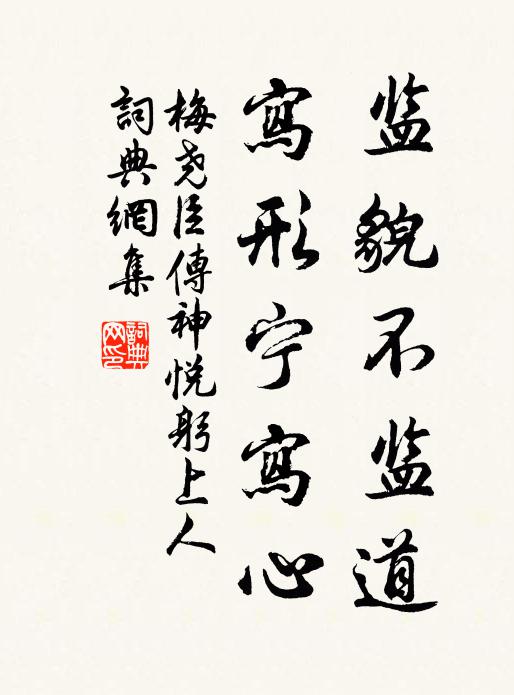 监貌不监道
寫形宁寫心
梅尧臣傳神悦躬上人
詞典網集
詞典网印